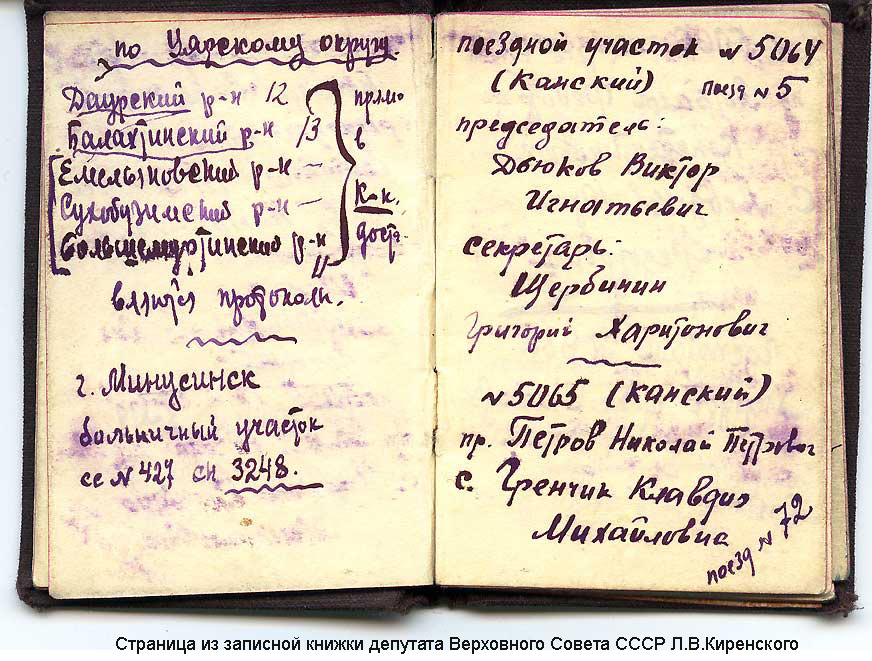 по Уярскому округу.
Даурский р-н 12
Балахтинский р-н 13
Емельяновский р-н —
Сухобузимский р-н —
Большемуртинский р-н
прямо
в
К-к.
доста-
вляются протоколы.
г. Минусинск
больничный участок
се N 427 сн 3248.
поездной участок N 5064
(Канский) Поезд N 5
председатель:
Дьюков Виктор
Игнатьевич
секретарь:
Щербинин
Григорий Харитонович
N 5065 (Канский)
пр. Петров Николай Петрович
с. Гренчик Клавдия
Михайловна
поезд N 72
Страница из записной книжки депутата Верховного Совета СССР Л.В.Киренского